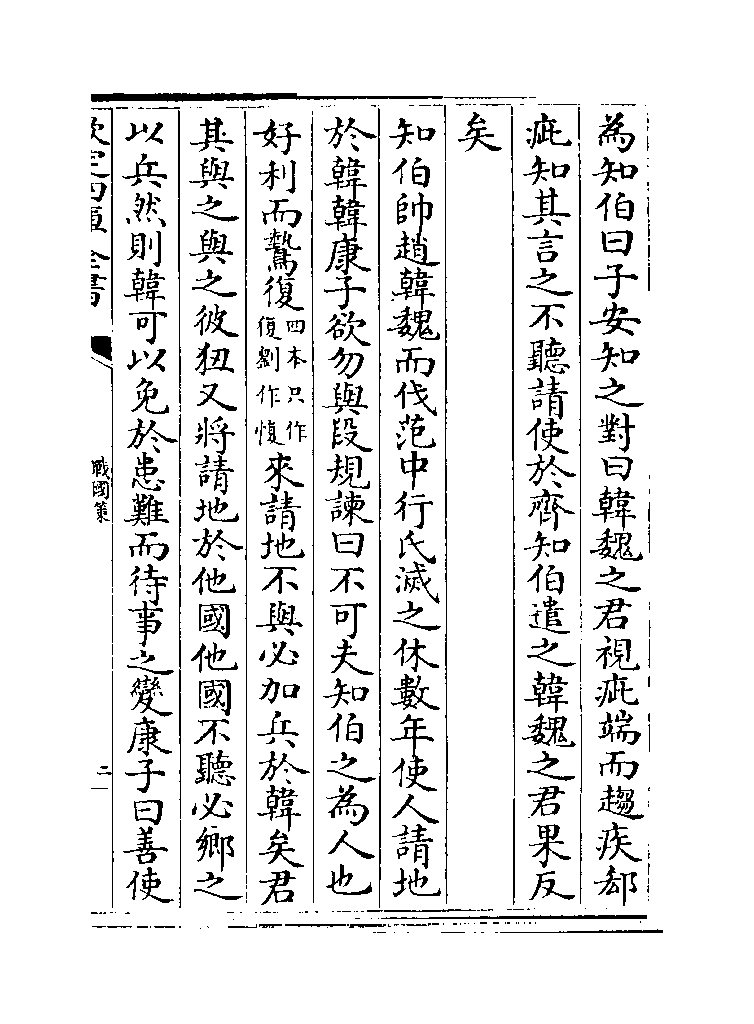 為知伯曰子安知之對曰韓魏之君視疵端而趨疾郄
疵知其言之不聽請使於齊知伯遣之韓魏之君果反
矣
知伯帥趙韓魏而伐范中行氏滅之休數年使人請地
於韓韓康子欲勿與段規諫曰不可夫知伯之為人也
好利而鷙復四本只作復劉作愎來請地不與必加兵於韓矣君
其與之與之彼狃又將請地於他國他國不聽必鄉之
以兵然則韓可以免於患難而待事之變康子曰善使
欽定四庫全書
戰國策
二